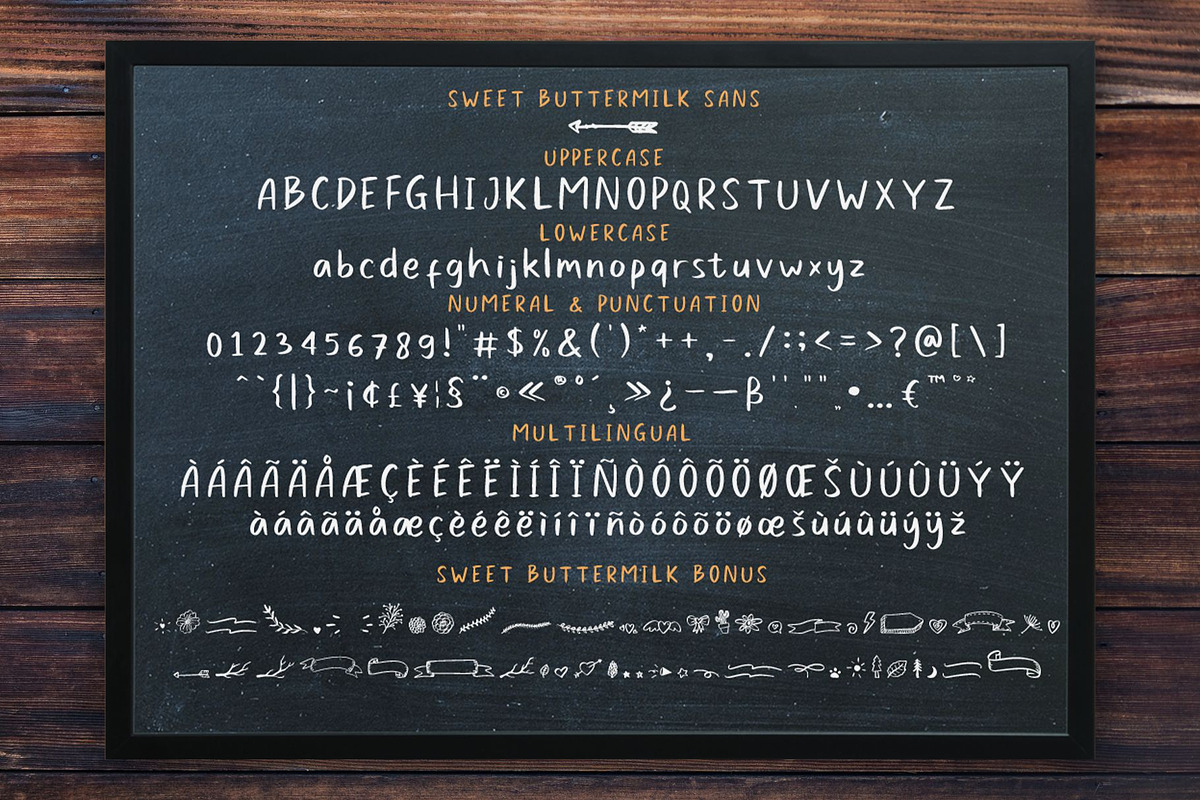 SWEET BUTTERMILK SANS
UPPERCASE
ABCDEFGHIJKLMNOPQRSTUVWXYZ
LOWERCASE
abcdefghijklmnopqrstuvwxyz
NUMERAL & PUNCTUATION
0123456789!"#$%&(')*++,-./:;<=>?@[\]
^``{|}~¡¢£¥¦§¨©«®°´¸»¿––β'' '""" „•…€™♡☆
MULTILINGUAL
ÀÁÂÃÄÅÆÇÈÉÊËÌÍÎÏÑÒÓÔÕÖØŒŠÙÚÛÜÝŸ
àáâãäåæçèéêëìíîïñòóôõöøœšùúûüýÿž
SWEET BUTTERMILK BONUS